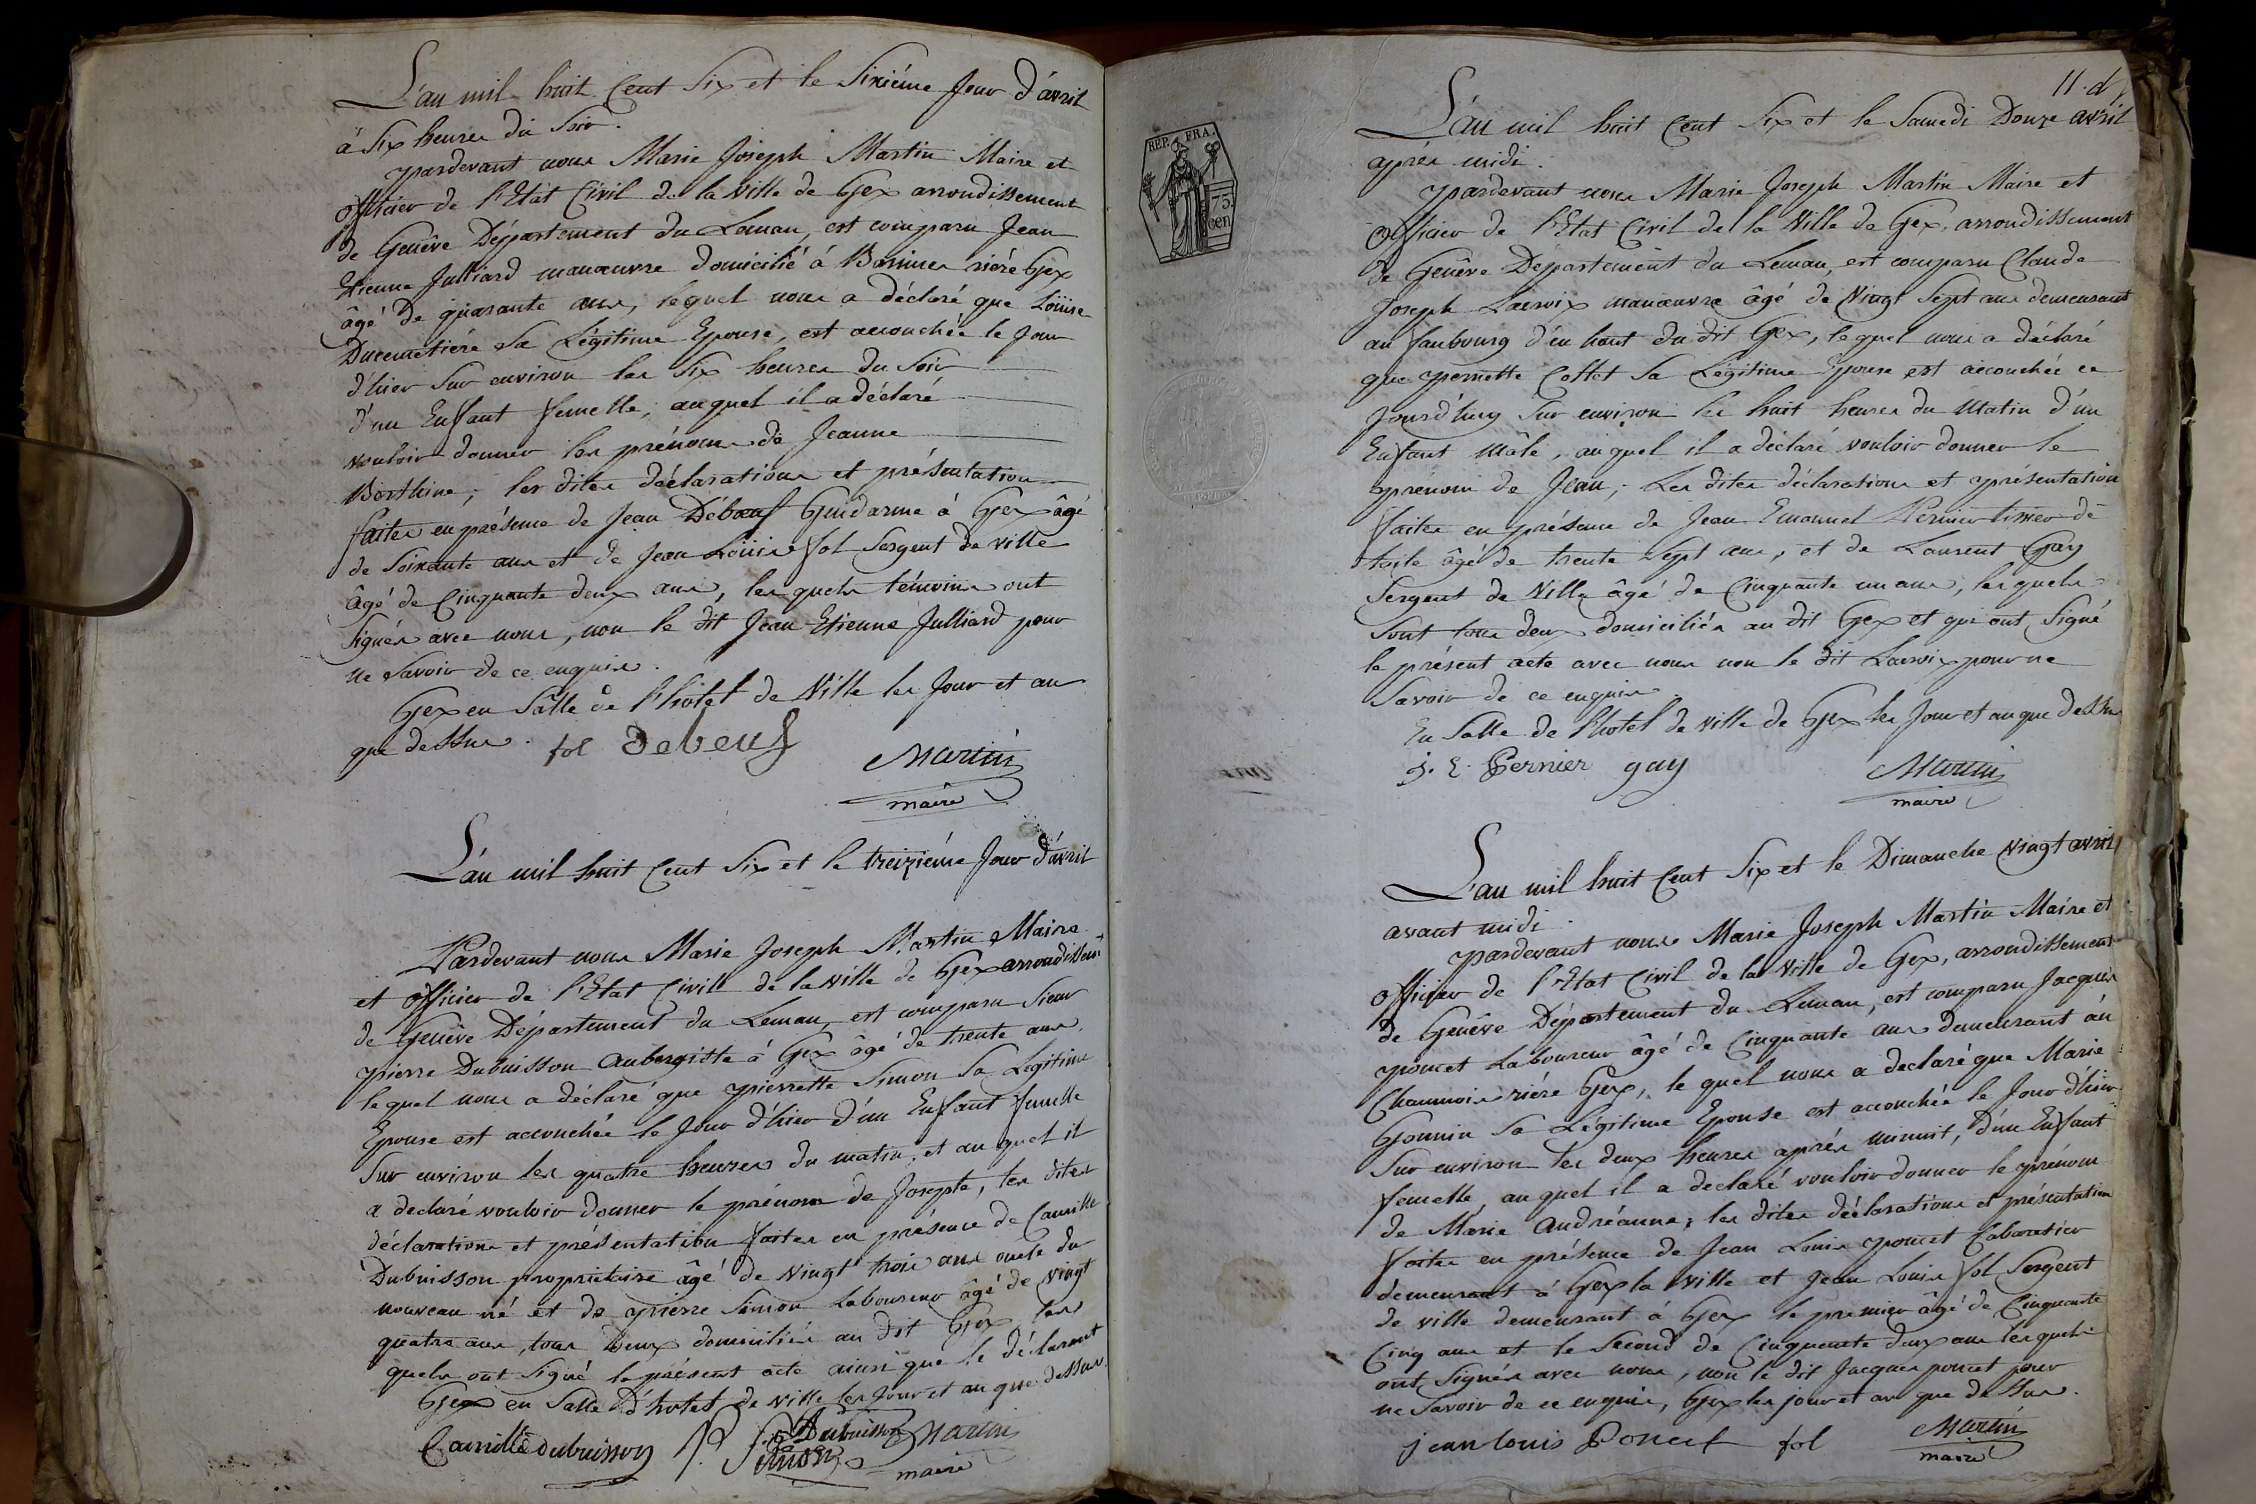 L'an mil huit Cent Six et le Sixiéme Jour d'ávril
á Six heures du Soir.
pardevant nous Marie Joseph Martin Maire et
officier de l'Etat Civil de la Ville de Gex arrondissement
de Genêve Département du Leman, est comparu Jean
Etienne Julliard manœuvre domicilié á riére Gex
âgé de quarante ans, lequel nous a déclaré que Loüise
Ducimetiére Sa Légitime Epouse, est accouchée le Jour
d'hier Sur environ les Six heures du Soir
d'un Enfant femelle, auquel il a déclaré
vouloir donner les prénoms de Jeanne
les dites déclarations et présentation
faites en présence de Jean Débœuf Gendarme á Gex âgé
de Soixante ans et de Jean Loüis fol Sergent de ville
âgé de Cinquante deux ans, les quels témoins ont
Signés avec nous, non le dit Jean Etienne Julliard pour
ne Savoir de ce enquis.
Gex en Salle de l'hotel de Ville les Jour et an
que dessus. fol debeuf
Martin
maire
L'an mil huit Cent Six et le treiziéme Jour d'ávril
Pardevant nous Marie Joseph Martin Maire
et officier de l'Etat Civil de la Ville de Gex arrondissemt
de Genêve Département du Leman, est comparu Sieur
pierre Dubuisson Aubergiste á Gex âgé de trente ans
lequel nous a déclaré que pierrette Simon Sa Légitime
Epouse est accouchée le Jour d'hier d'un Enfant femelle
Sur environ les quatre heures du matin, et au quel il
a declaré vouloir donner le prénom de Josepte, les dites
déclarations et présentation faites en présence de Camille
Dubuisson propriétaire âgé de Vingt trois ans oncle du
nouveau né et de pierre Simon Laboureur âgé de vingt
quatre ans, tous deux domiciliés au dit Gex, les
quels ont Signé le présent acte ainsi que le déclarant
Gex en Salle d'hotel de ville les Jour et an que dessus.
Camille dubuisson P. Dubuisson Martin
Simon maire
11. d
REP. FRA.
75.
cen
L'an mil huit Cent Six et le Samedi Douze avril
aprés midi.
pardevant nous Marie Joseph Martin Maire et
Officier de l'Etat Civil de la Ville de Gex, arrondissement
de Genêve Département du Leman, est comparu Claude
Joseph Lacroix manœuvre âgé de Vingt Sept ans demeurant
au faubourg d'en haut du dit Gex, lequel nous a déclaré
que pernette Collet Sa Légitime Epouse est accouchée ce
Jourd'huy Sur environ les huit heures du Matin d'un
Enfant Mâle, auquel il a déclaré vouloir donner le
prénom de Jean; Les dites déclarations et présentation
faites en présence de Jean Emanuel Pernier tissier de
toile âgé de trente Sept ans, et de Laurent Gay
Sergent de Ville âgé de Cinquante un ans, les quels
Sont tous deux domiciliés au dit Gex et qui ont Signé
le présent acte avec nous non le dit Lacroix pour ne
Savoir de ce enquis.
En Salle de l'hotel de ville de Gex les Jour et an que dessus
J. E. Pernier gay Martin
maire
L'an mil huit Cent Six et le Dimanche Vingt avril
avant midi
pardevant nous Marie Joseph Martin Maire et
Officier de l'Etat Civil de la Ville de Gex, arrondissement
de Genêve Département du Leman, est comparu Jacques
poncet Laboureur âgé de Cinquante ans demeurant au
riére Gex, le quel nous a declaré que Marie
Sa Légitime Epouse est accouchée le Jour d'hier
Sur environ les deux heures aprés minuit, d'un Enfant
femelle, auquel il a declaré vouloir donner le prénom
de Marie Andréanne; les dites déclarations et présentation
faites en présence de Jean Louis poncet Cabaretier
demeurant á Gex la Ville et Jean Louis fol Sergent
de ville demeurant á Gex le premier âgé de Cinquante
Cinq ans et le Second de Cinquante deux ans lesquels
ont Signés avec nous, non le dit Jacques poncet pour
ne Savoir de ce enquis, Gex les jour et an que dessus.
jean louis Poncet fol Martin
maire